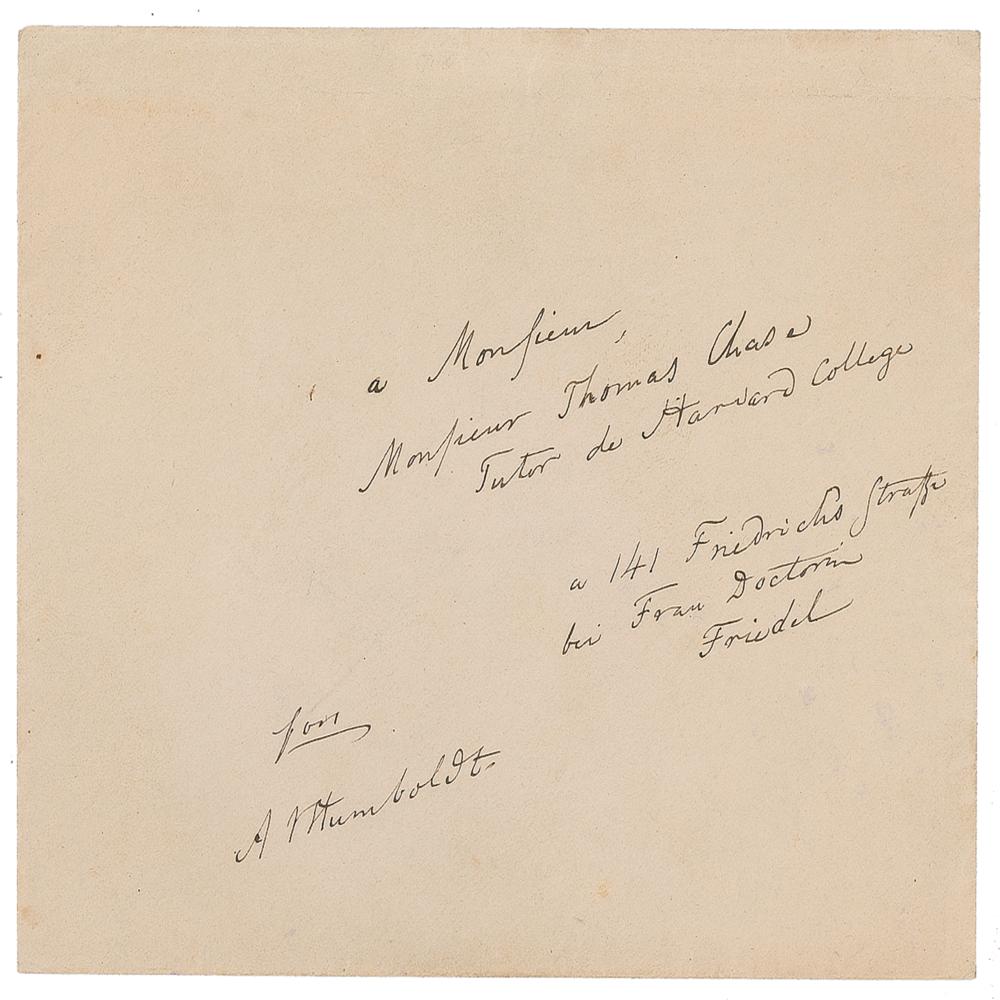 a Monsieur,
Monsieur Thomas Chase
Tutor de Harvard College
a 141 Friedrichs Straße
bei Frau Doctorin
Friedel
fon
A v Humboldt